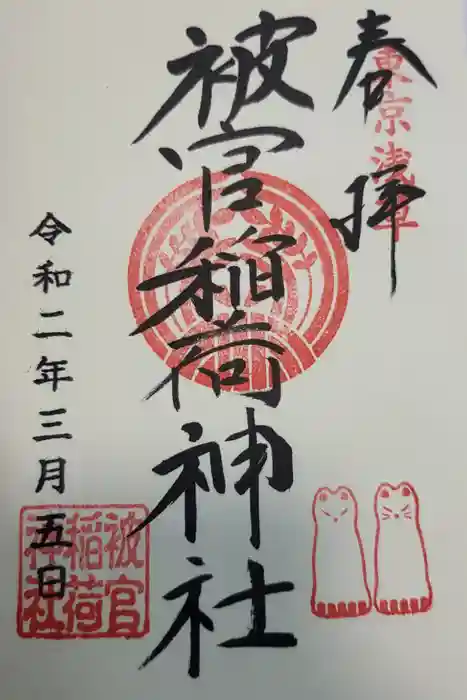 奉拝
東京浅草
被官稲荷神社
令和二年三月五日
被官稲荷神社